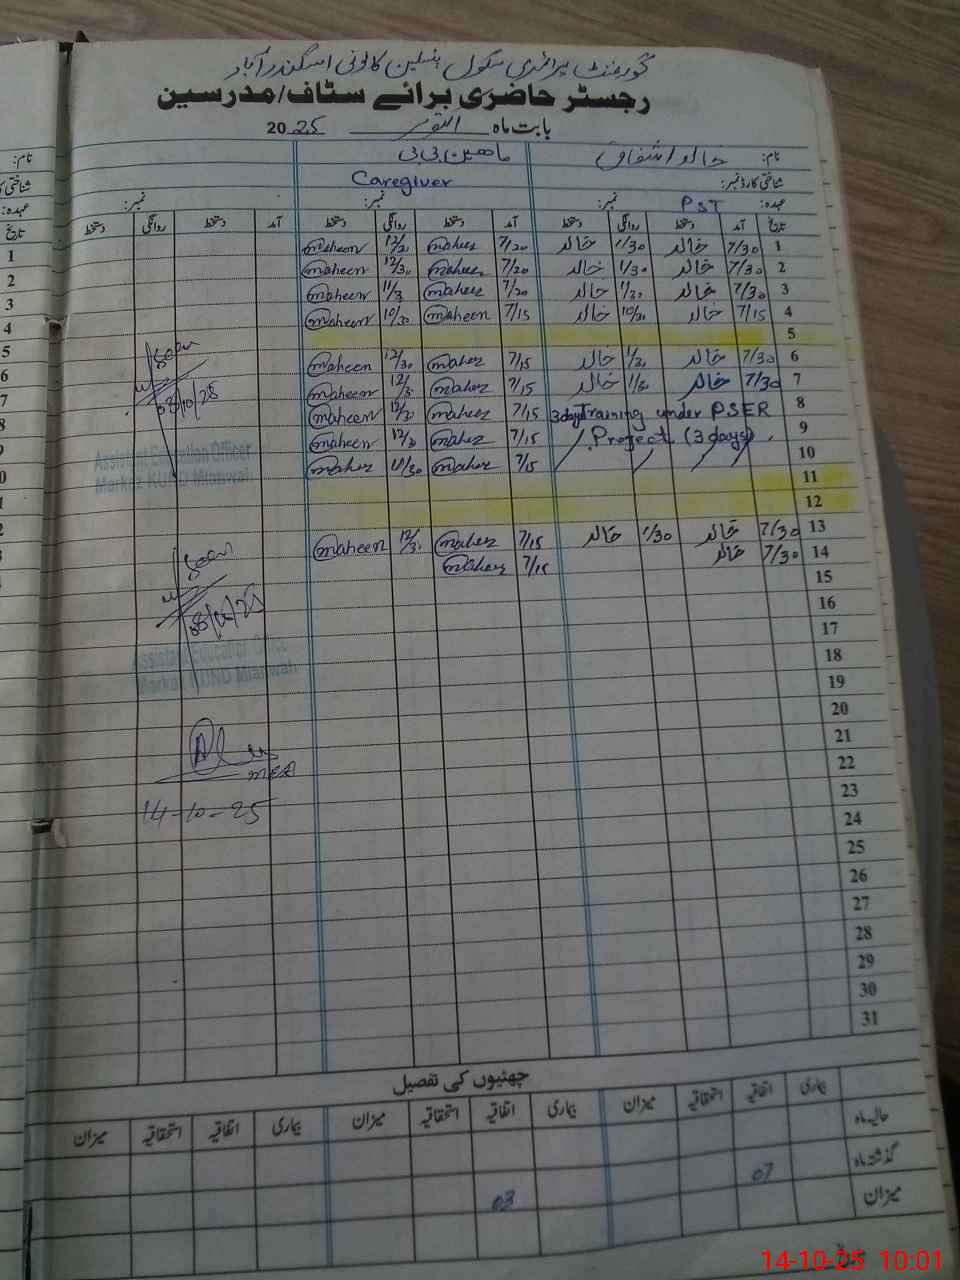 گورنمنٹ پرائمری سکول پنسلین کالونی اسکندرآباد
رجسٹر حاضری برائے سٹاف/مدرسین
بابت ماہ اکتوبر 2025
نام: خالد اشفاق ماھین بی بی
شناختی کارڈ نمبر: Caregiver
عہدہ: PST نمبر: نمبر:
تاریخ آمد دستخط روانگی دستخط آمد دستخط روانگی دستخط آمد دستخط روانگی دستخط
1 7/30 خالد 1/30 خالد 7/20 maheen maheen
2 7/30 خالد 1/30 خالد 7/20 maheen 12/30 maheen
3 7/30 خالد 1/30 خالد 7/20 maheen maheen
4 7/15 خالد 10/30 خالد 7/15 maheen 10/30 maheen
5
6 7/30 خالد 1/30 خالد 7/15 maheen 12/30 maheen
7 7/30 خالد 1/30 خالد 7/15 maheen maheen
8 3 days Training under PSER 7/15 maheen maheen
9 Project (3 days) 7/15 maheen maheen
10 7/15 maheen 11/30 maheen
11
12
13 7/30 خالد 1/30 خالد 7/15 maheen maheen
14 7/30 خالد 7/15 maheen
15
16
17
18
19
20
21
22
23
24
25
26
27
28
29
30
31
08/10/25
Assistant Education Officer
Markaz KUND Mianwali
Assistant Education Office
Markaz KUND Mianwali
MEA
14-10-25
چھٹیوں کی تفصیل
بیماری اتفاقیہ استحقاقیہ میزان بیماری اتفاقیہ استحقاقیہ میزان بیماری اتفاقیہ استحقاقیہ میزان
حالیہ ماہ
گذشتہ ماہ 07 03
میزان
14-10-25 10:01